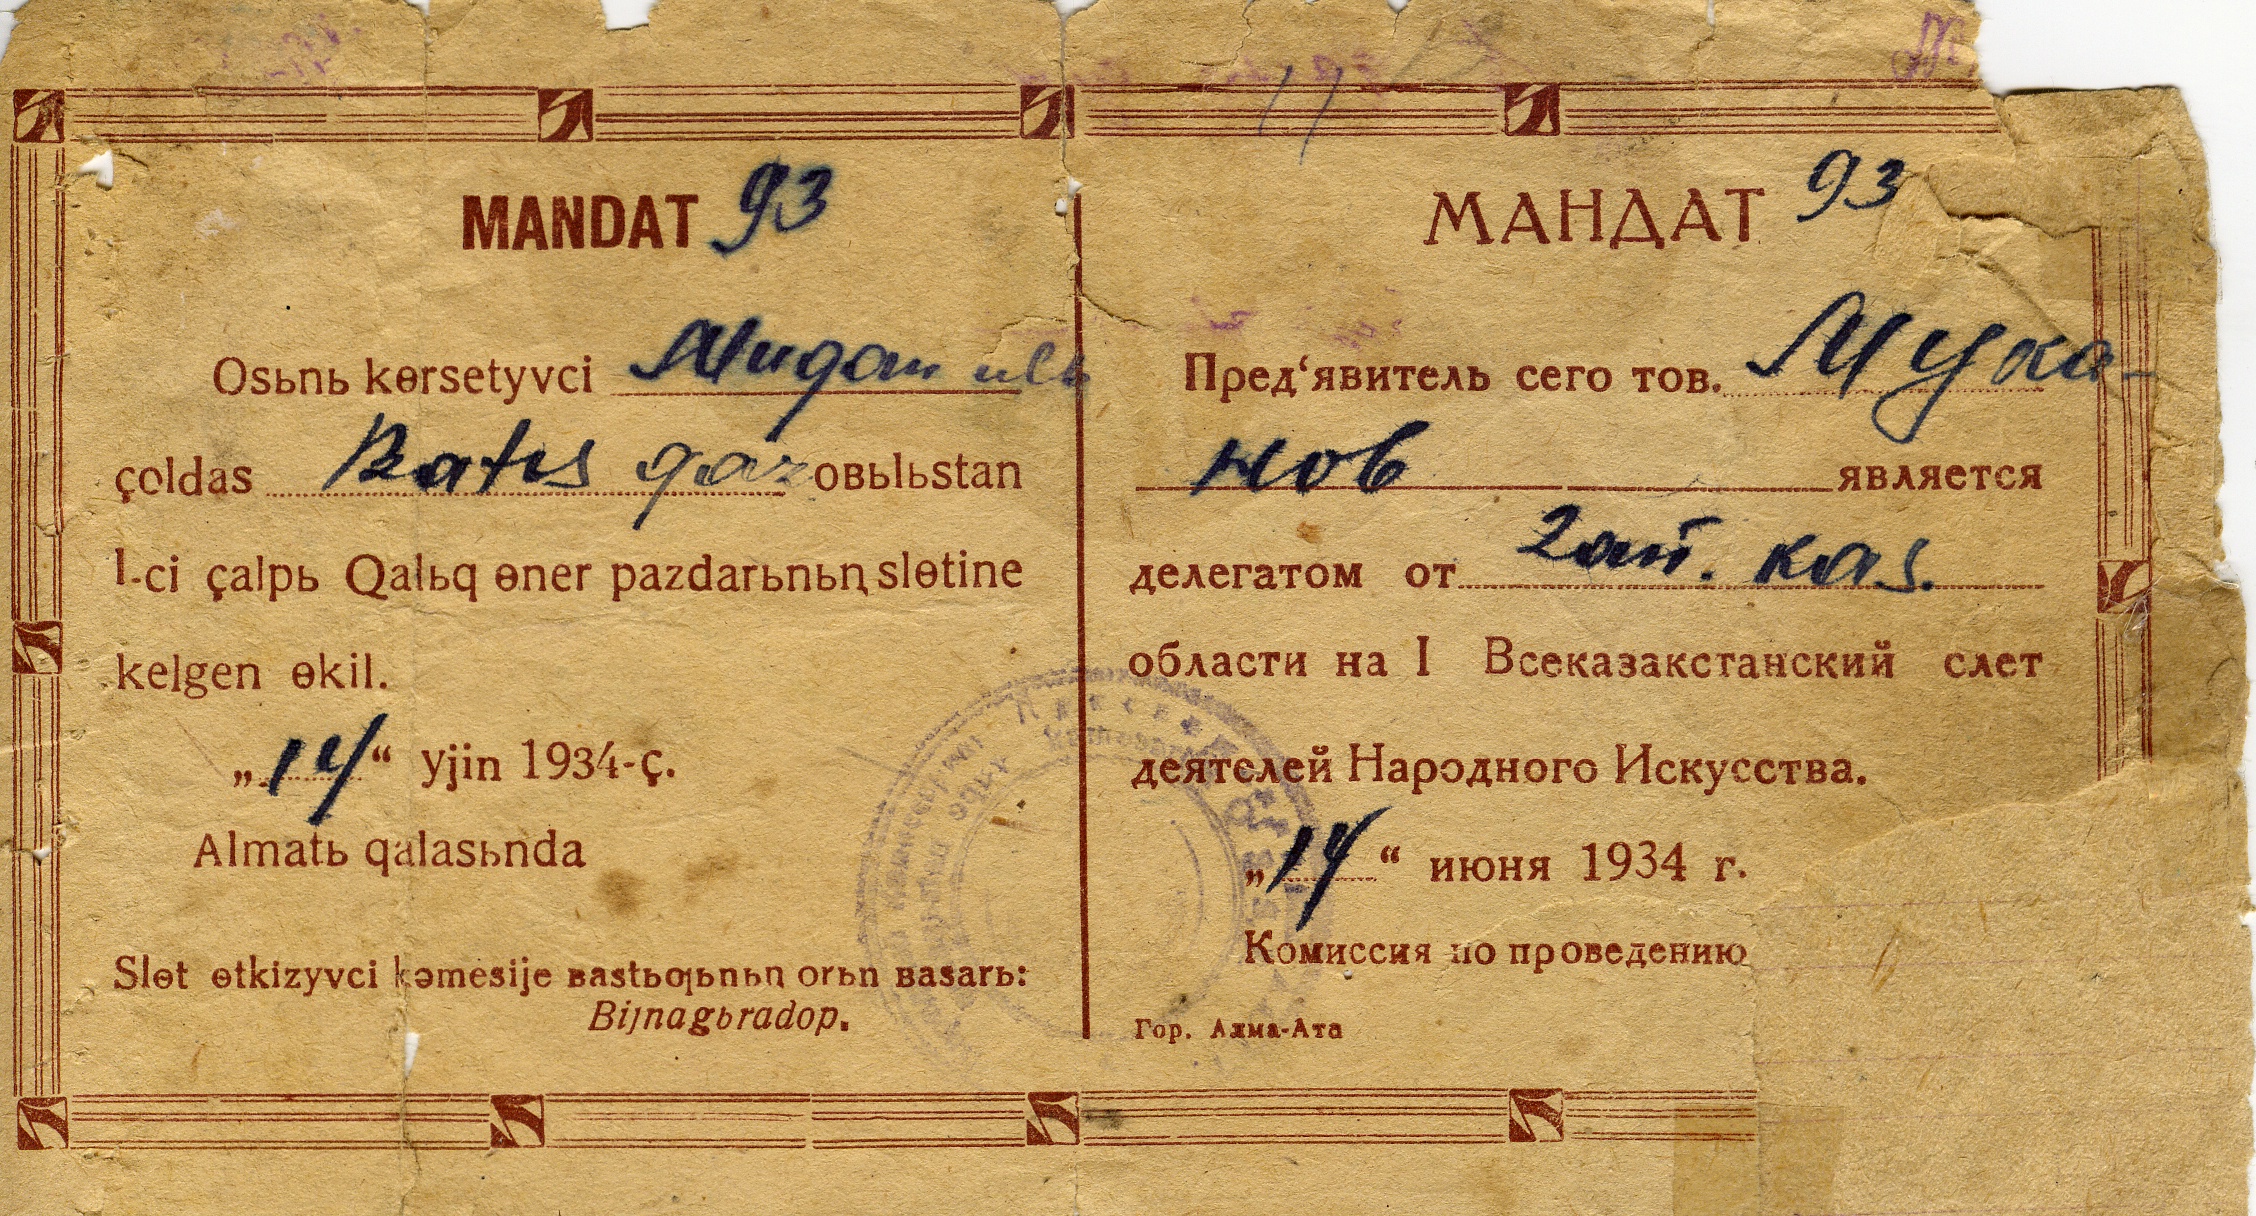 MANDAT 93
Osьnь kөrsetyvci Muqan ulь
çoldas Batьs qaz oвlьlьstan
I-ci çalpь Qalьq өner pazdarьnьꞑ slөtine
kelgen өkil.
„14“ yjin 1934-ç.
Almatь qalasьnda
Slөt өtkizyvci kəmesije вastьƣьnьꞑ orьn вasarь:
Bijnagьradop.
МАНДАТ 93
Пред‘явитель сего тов. Мука-
нов является
делегатом от Зап. Каз.
области на I Всеказакстанский слет
деятелей Народного Искусства.
„14“ июня 1934 г.
Комиссия по проведению
Гор. Алма-Ата